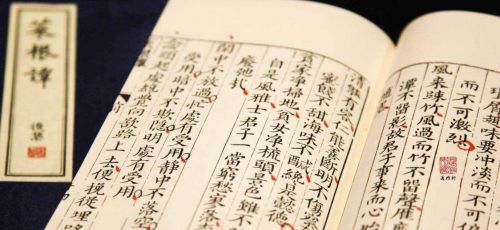 菜根譚
趣味要冲淡而不
而不可激烈
風來疎竹風過而竹不留聲雁度
潭不留影故君子事來而心始
清能有容仁能善斷明不傷察
蜜餞不甜海味不鹹纔是懿德
貧家淨掃地貧女淨梳頭景色雖不
自是風雅士君子一當窮愁寥落
廢弛哉
閒中不放過忙處有受用靜中不落空
受用暗中不欺隱明處有受用
念頭起處纔覺向欲路上去便挽從理路